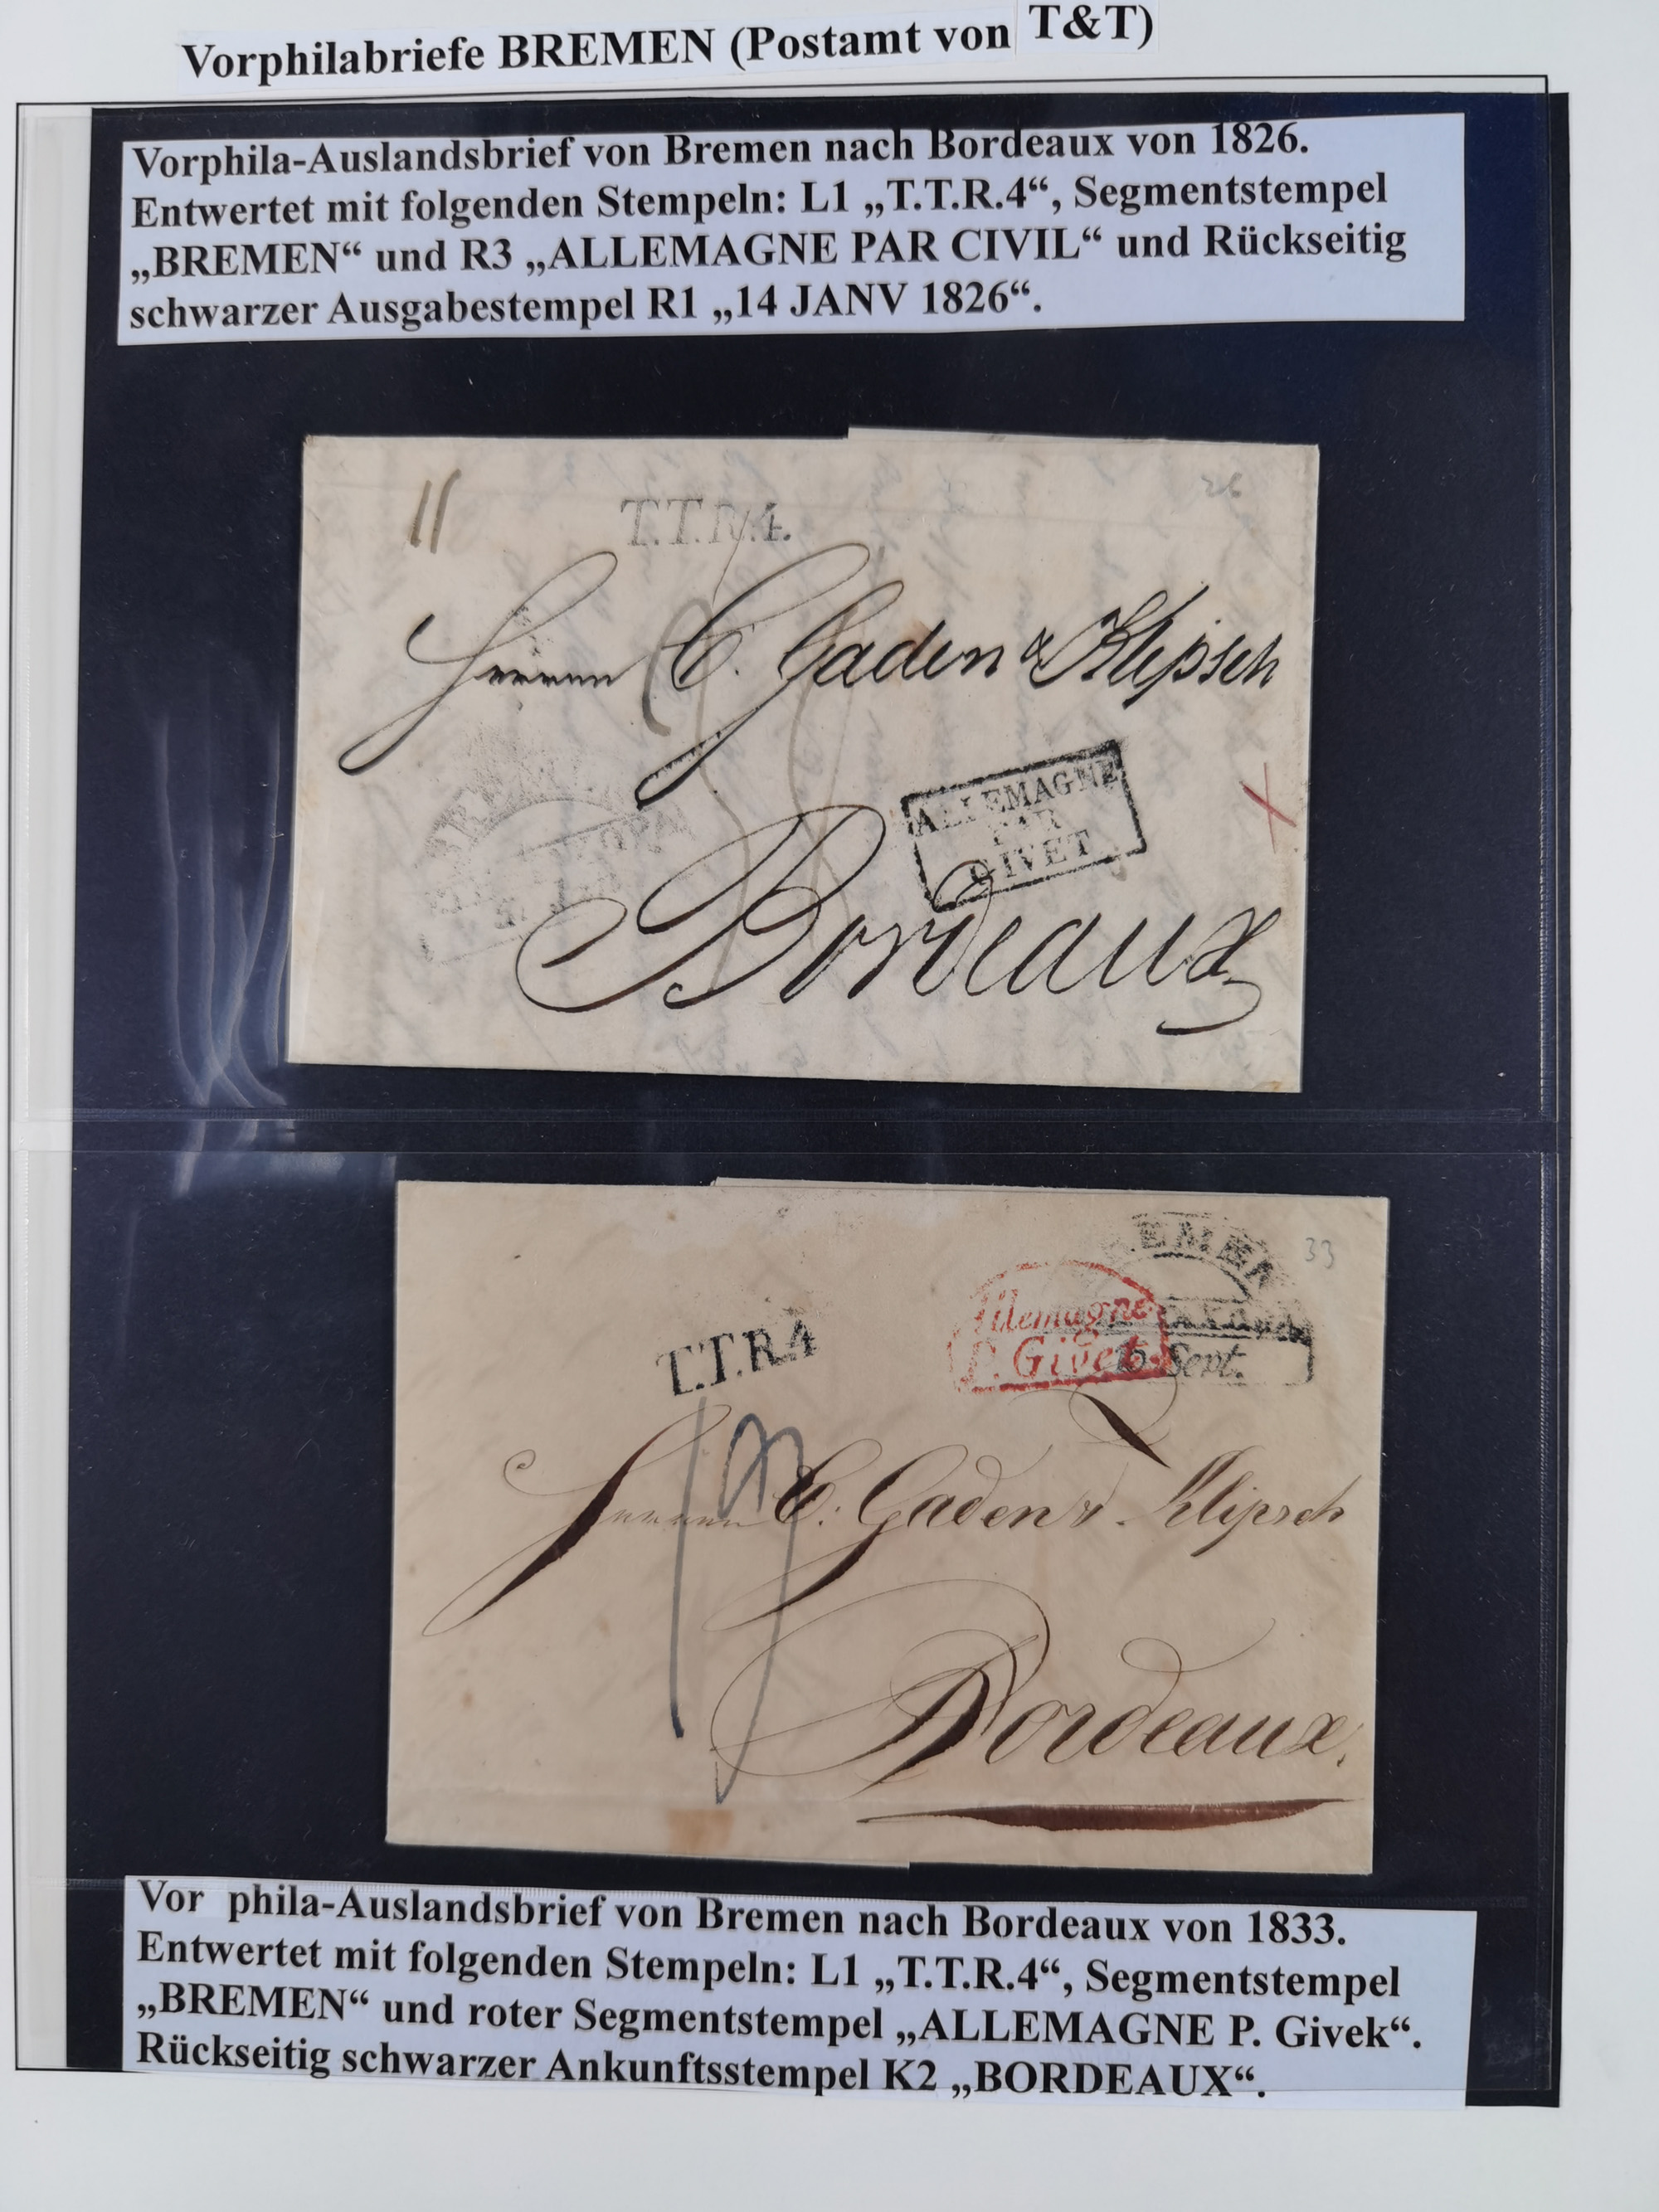 Vorphilabriefe BREMEN (Postamt von T&T)
Vorphila-Auslandsbrief von Bremen nach Bordeaux von 1826.
Entwertet mit folgenden Stempeln: L1 „T.T.R.4“, Segmentstempel
„BREMEN“ und R3 „ALLEMAGNE PAR CIVIL“ und Rückseitig
schwarzer Ausgabestempel R1 „14 JANV 1826“.
26
T.T.R.4.
Herren C. Gaden & Klipsch
BREMEN
ALLEMAGNE
PAR
GIVET
Bordeaux
BREMEN
33
Allemagne
P. Givet
Sept.
T.T.R.4
Herren C. Gaden & Klipsch
Bordeaux.
Vor phila-Auslandsbrief von Bremen nach Bordeaux von 1833.
Entwertet mit folgenden Stempeln: L1 „T.T.R.4“, Segmentstempel
„BREMEN“ und roter Segmentstempel „ALLEMAGNE P. Givek“.
Rückseitig schwarzer Ankunftsstempel K2 „BORDEAUX“.